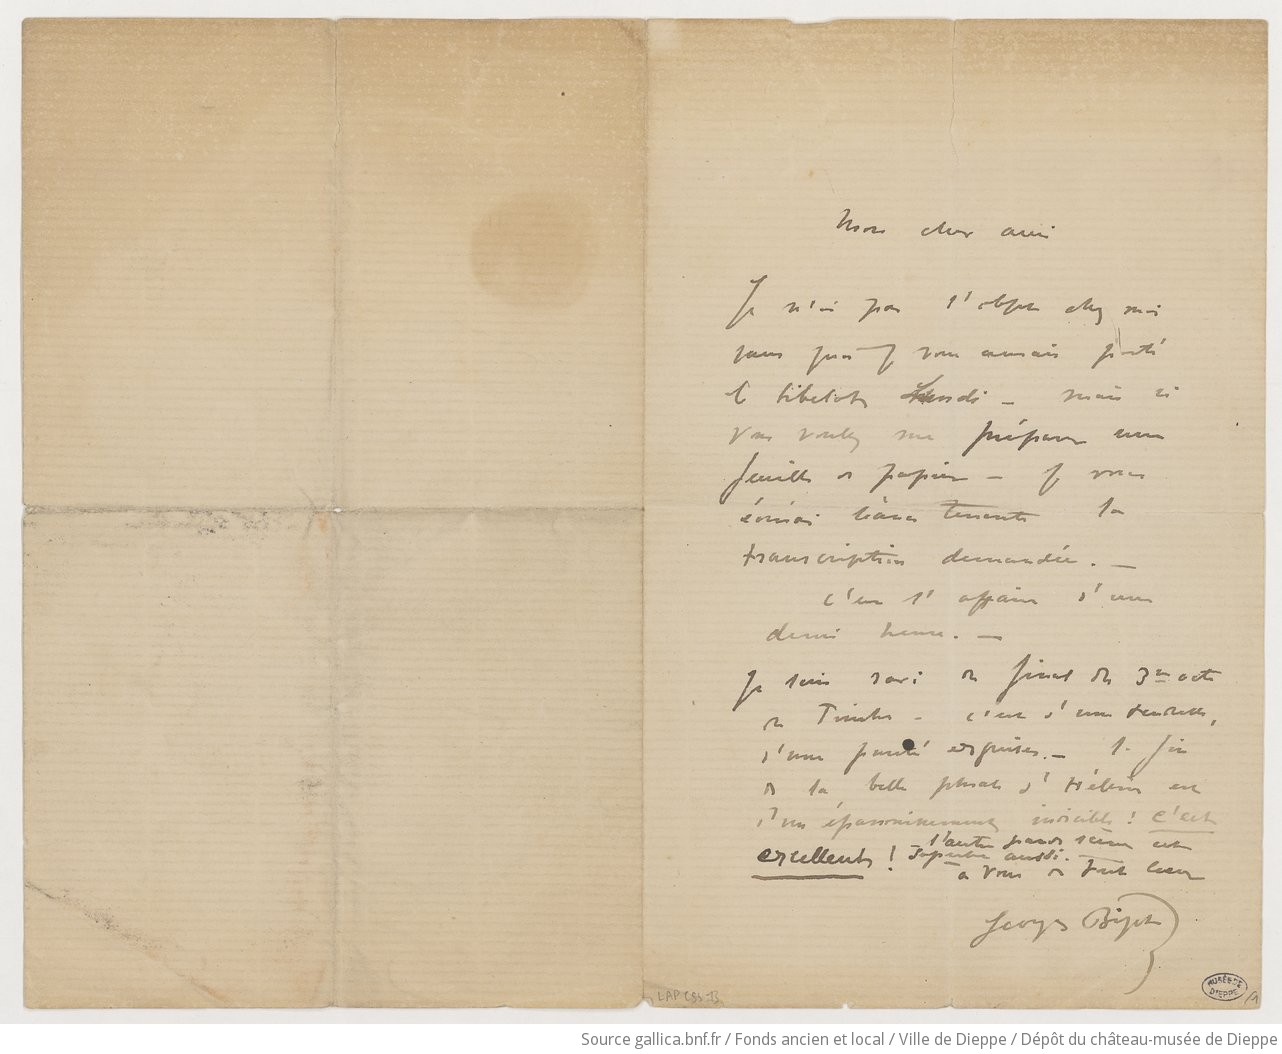 Mon cher ami
Je n'ai pas l'objet chez moi
sans quoi je vous aurais porté
le bibelot lundi – mais si
vous voulez me préparer une
feuille de papier – je vous
écrirai séance tenante la
transcription demandée. –
c'est l'affaire d'une
demi heure. –
Je suis ravi du final du 3me acte
de – c'est d'une tendresse,
d'une pureté exquises. – la fin
de la belle phrase d'Hélène est
d'un épanouissement ! c'est
excellent ! – l'autre grande scène est
superbe aussi. –
à vous de tout coeur
Georges Bizet
LAP C
MUSÉE DE
DIEPPE
Source gallica.bnf.fr / Fonds ancien et local / Ville de Dieppe / Dépôt du château-musée de Dieppe